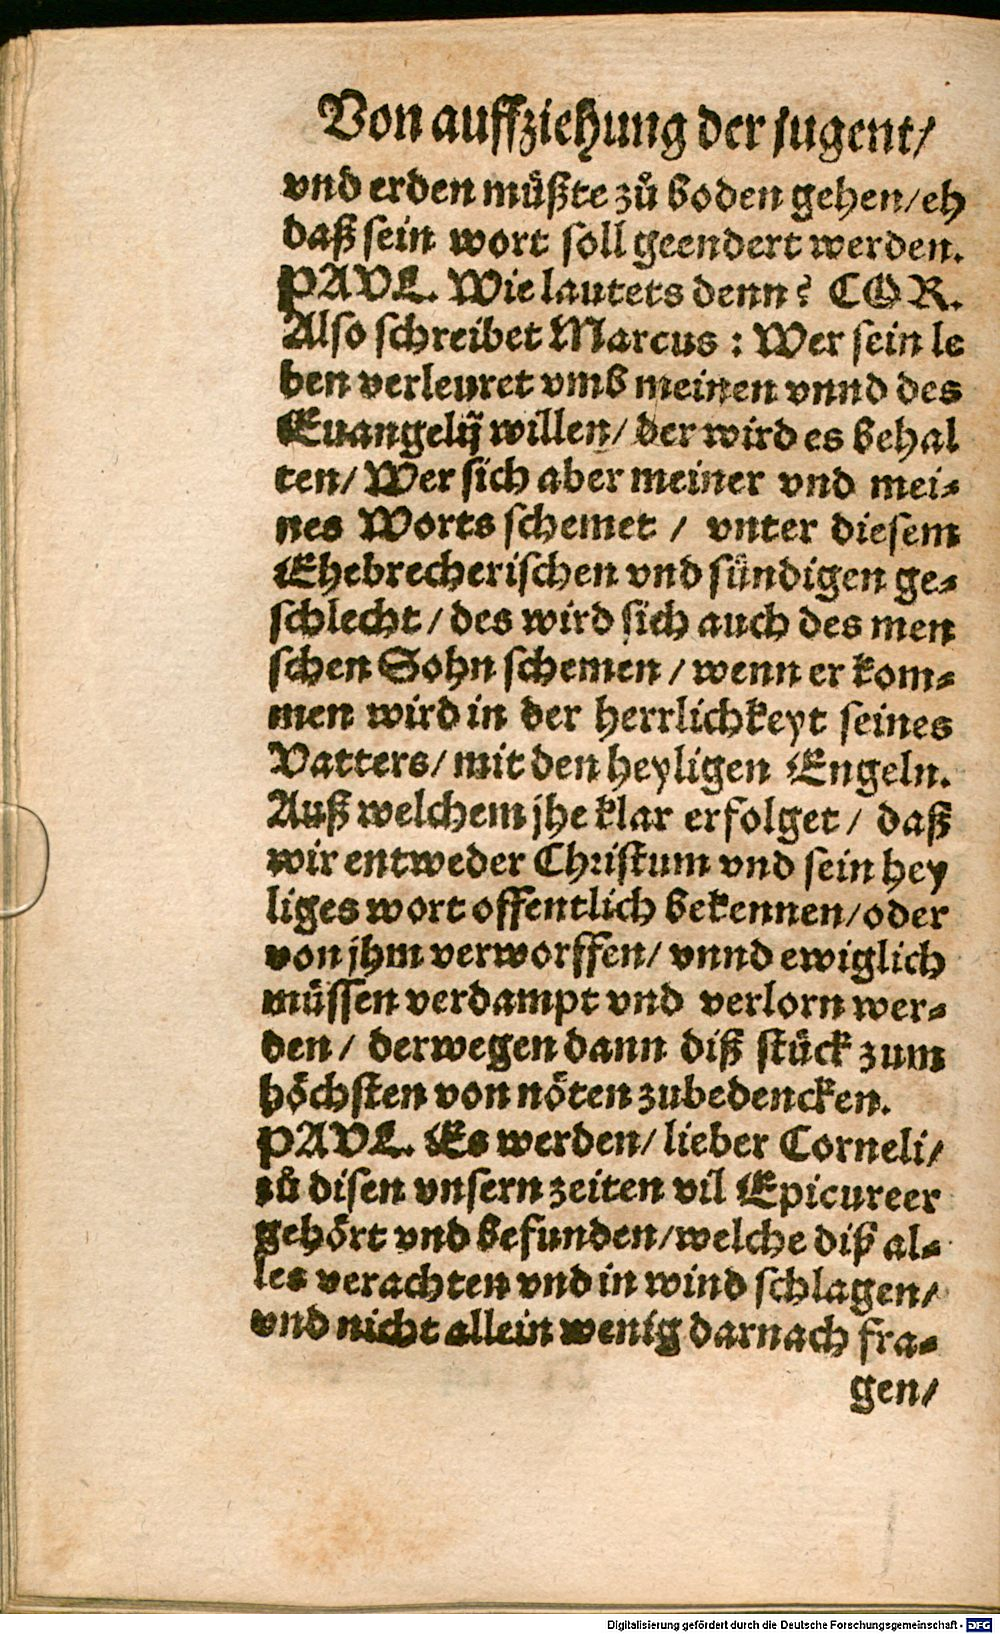 Von auffziehung der jugent/
vnd erden müßte zů boden gehen/eh
daß sein wort soll geendert werden.
PAVL. Wie lautets denn? COR.
Also schreibet Marcus : Wer sein le
ben verleuret vmb meinen vnnd des
Euangelij willen/ der wird es behal
ten/ Wer sich aber meiner vnd mei⸗
nes Worts schemet / vnter diesem
Ehebrecherischen vnd sündigen ge⸗
schlecht / des wird sich auch des men
schen Sohn schemen / wenn er kom⸗
men wird in der herrlichkeyt seines
Vatters/ mit den heyligen Engeln.
Auß welchem jhe klar erfolget / daß
wir entweder Christum vnd sein hey
liges wort offentlich bekennen/oder
von jhm verworffen/ vnnd ewiglich
müssen verdampt vnd verlorn wer⸗
den / derwegen dann diß stück zum
höchsten von nöten zubedencken.
PAVL. Es werden/ lieber Corneli/
zů disen vnsern zeiten vil Epicureer
gehört vnd befunden/welche diß al⸗
les verachten vnd in wind schlagen/
vnd nicht allein wenig darnach fra⸗
gen/
Digitalisierung gefördert durch die Deutsche Forschungsgemeinschaft - DFG